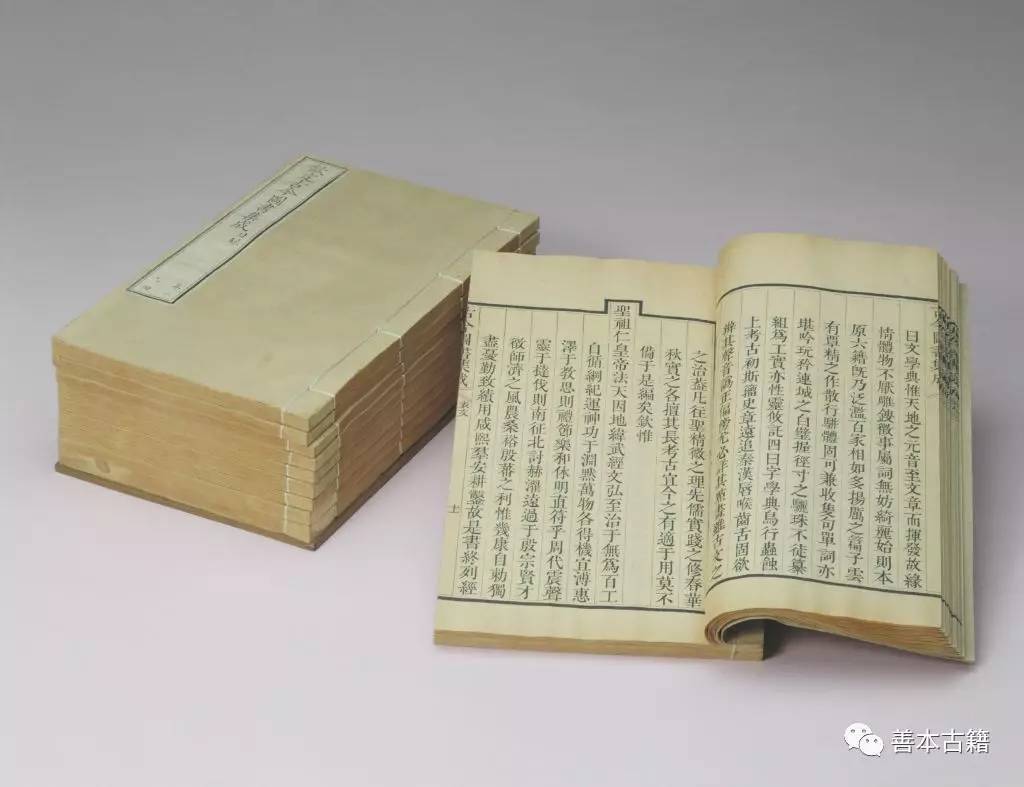 欽定古今圖書集成
古今圖書集成
曰文學典惟天地之元音至文章而揮發故緣
情體物不厭雕鎪徵事屬詞無妨綺麗始則本
原六籍旣乃泛濫百家相如多揚厲之篇子雲
有覃精之作散行駢體固可兼收隻句單詞亦
堪吟玩矜連城之白璧握徑寸之驪珠不徒纂
組爲工實亦性靈攸託四曰字學典鳥行蟲蝕
上考古初斯籀史章遠追秦漢唇喉齒舌固欲
辨其聲音譌正偏旁尤必詳其古文之
之治葢凡往聖精微之理先儒實踐之修春華
秋實之各擅其長考古宜今之有適于用莫不
備于是編矣欽惟
聖祖仁皇帝法天因地緯武經文弘至治于無爲百工
自循綱紀運神功于淵黙萬物各得機宜溥惠
澤于敎思則禮節樂和休明直符乎周代震聲
靈于撻伐則南征北討赫濯遠過于殷宗賢才
徵師濟之風農桑裕殷蕃之利惟幾康自勅獨
盡憂勤致績用咸熙羣安耕鑿故是書終列經
古今圖書集成 表文 十一
善本古籍